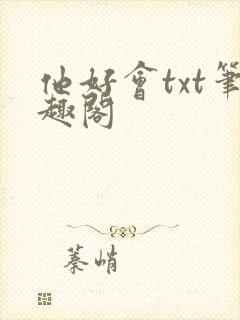 他好會txt筆
趣閣
蓁峭